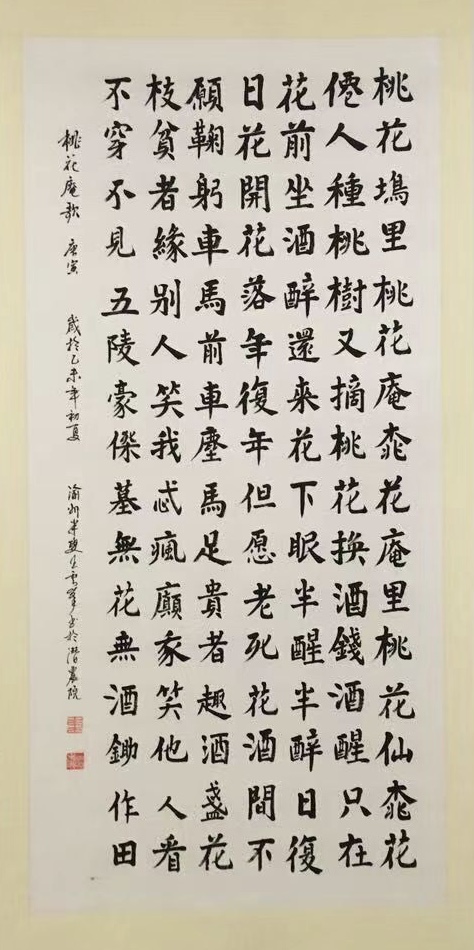 桃花塢里桃花庵桃花庵里桃花仙桃花
僊人種桃樹又摘桃花换酒錢酒醒只在
花前坐酒醉還来花下眠半醒半醉日復
日花開花落年復年但愿老死花酒間不
願鞠躬車馬前車塵馬足貴者趣酒盞花
枝貧者緣别人笑我忒瘋癲家笑他人看
不穿不見五陵豪傑墓無花無酒鋤作田
桃花庵歌 唐寅 歲於乙未年初夏 渝州 書於潛廬院